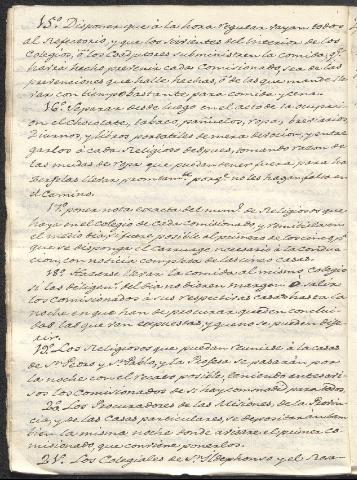 15º Disponer que à la hora regular vayan todos
al Refectorio, y que los sirvientes del interior de los
Colegios, ò los Conductores subministren la comida, q.e
havrà hecho prevenir cada Comisionado, sea de las
prevenciones que halle hechas, ò de las que mande lle-
var con tiempo bastante para comida y cena.
16º Separar desde luego en el acto de la ocupaci-
on el chocolate, tabaco, pañuelos, ropa, breviarios,
Diurnos, y libros portatiles de mera devocion, y entre-
garlos à cada Religioso despues, tomando razon de
las mudas de ropa que puedan tener fuera, para ha-
cerselas llevar prontam.te porq.e no les hagan falta en
el Camino.
17º poner nota exacta del num.º de Religiosos que
haya en el colegio de cada comisionado, y remitirla en
el medio dia, si fuel posible al primero de los cinco p.a
que se disponga el carruage necesario à la condu-
cion, con noticia completa de las cinco casas.
18º Hacerse llevar la comida al mismo Colegio
si las diligen.s del dia no dieren margen à salir
los comisionados à sus respectivas casas hasta la
noche en que han de procurar queden conclui-
das las que van expuestas, y que no se pueden dife-
rir.
19º Los Religiosos que puedan reunirse à la casas
de S.n Pedro, y S.n Pablo, y la Profesa se pasarán por
la noche con el posible, teniendo antes avi-
so los comisionados de si hay comodidad para todos.
20. Los Procuradores de las Misiones, de la Provin-
cia, y de las casas particulares, se depositarán tam-
bien la misma noche donde avisare el primer co-
misionado, que conviene ponerlos.
21º Los Colegiales de S.n Ildephonso y el Rosa-